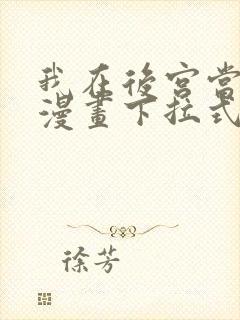 我在後宮當
漫畫下拉式
徐芳